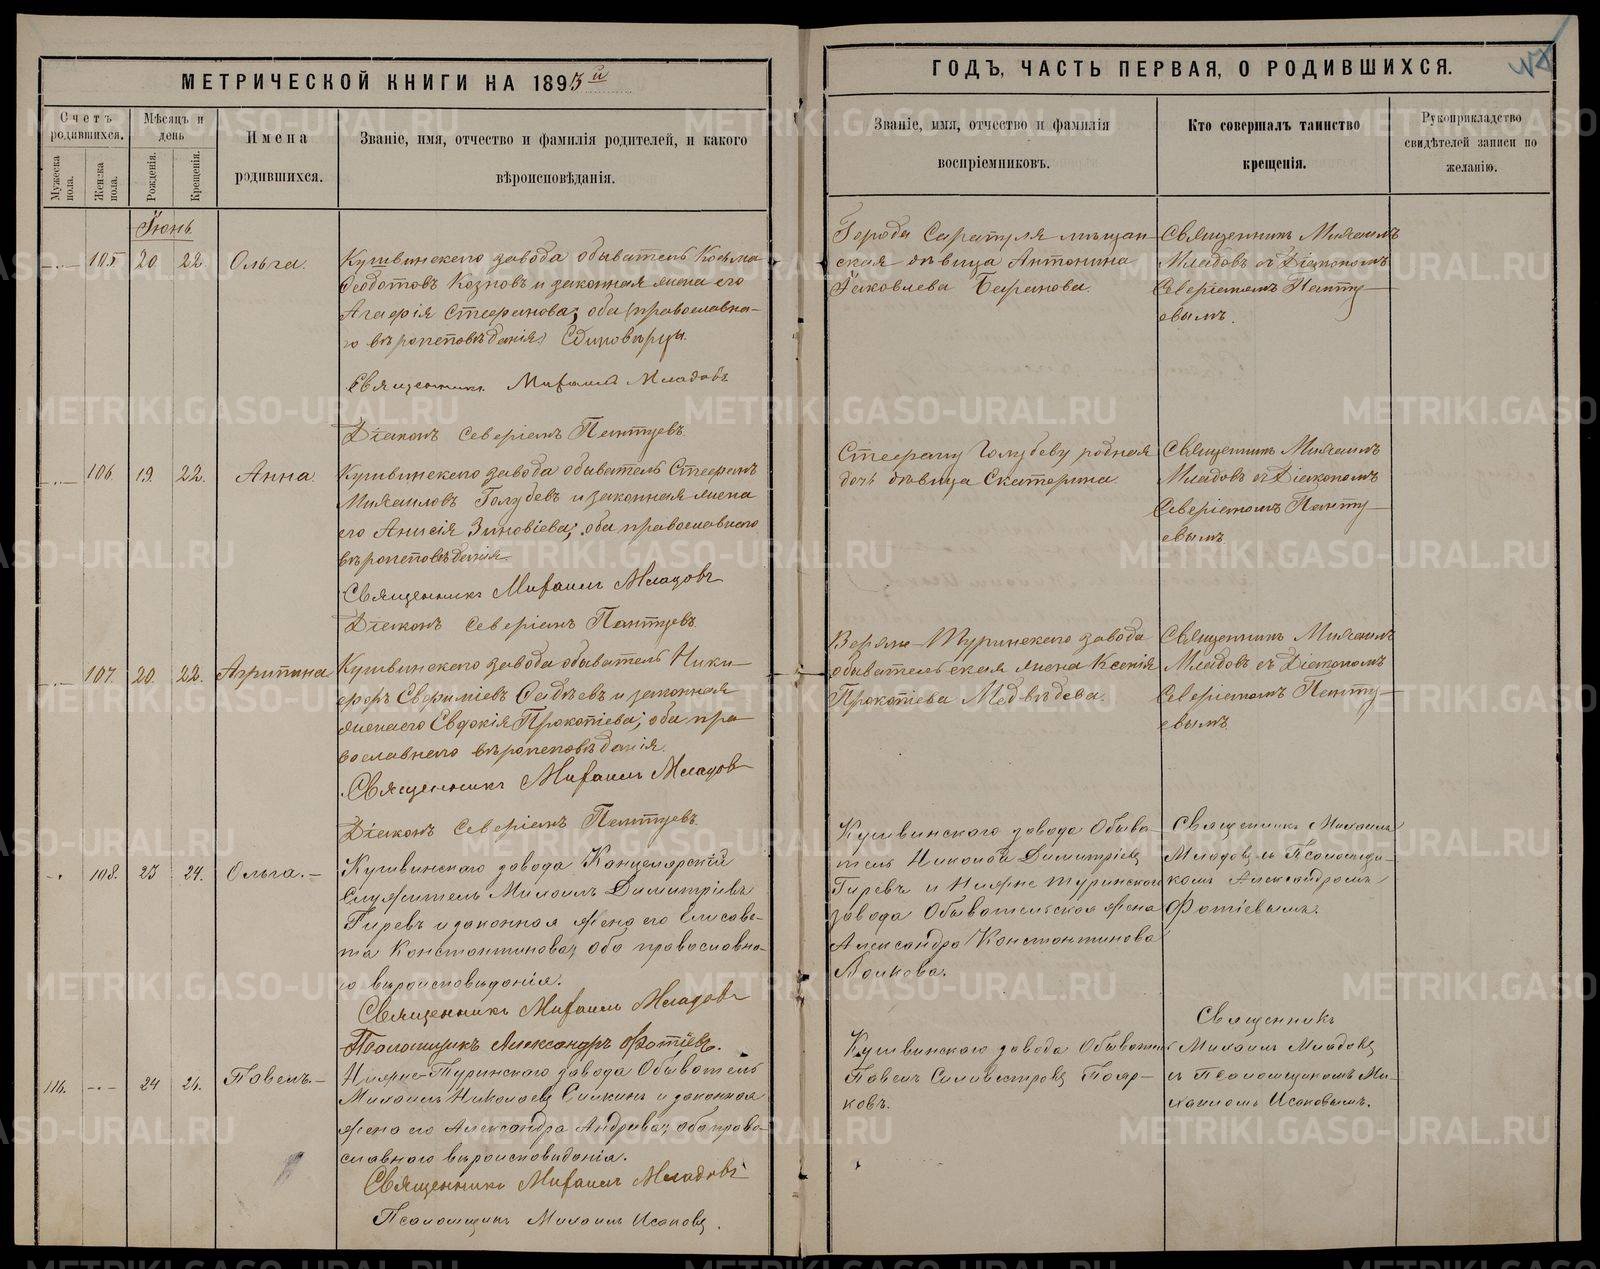 МЕТРИЧЕСКОЙ КНИГИ НА 1893й
Счетъ родившихся.
Мужеска пола.
Женска пола.
Мѣсяцъ и день
Рожденія.
Крещенія.
Имена родившихся.
Званіе, имя, отчество и фамилія родителей, и какого
вѣроисповѣданія.
ГОДЪ, ЧАСТЬ ПЕРВАЯ, О РОДИВШИХСЯ.
Званіе, имя, отчество и фамилія
воспріемниковъ.
Кто совершалъ таинство
крещенія.
Рукоприкладство
свидѣтелей записи по
желанію.
Іюнь
105 20 22. Ольга.
Кушвинскаго завода обыватель Козьма
Ѳеодотовъ Козловъ и законная жена его
Агафія Стефанова; оба (православна-
го вѣроисповѣданія) Единовѣрцы.
Священникъ Михаилъ Младовъ
Діаконъ Северіанъ Пантуевъ
Города Сарапуля мѣщан-
ская дѣвица Антонина
Іаковлева Баранова.
Священникъ Михаилъ
Младовъ съ Діакономъ
Северіаномъ Панту-
евымъ.
106 19. 22. Анна.
Кушвинскаго завода обыватель Стефанъ
Михаиловъ Голубевъ и законная жена
его Анисія Зиновіева; оба православнаго
вѣроисповѣданія
Священникъ Михаилъ Младовъ
Діаконъ Северіанъ Пантуевъ
Стефану Голубеву родная
дочь дѣвица Екатерина
Священникъ Михаилъ
Младовъ съ Діакономъ
Северіаномъ Панту-
евымъ
107. 20. 22. Агрипина
Кушвинскаго завода обыватель Ники-
форъ Евфиміевъ Фадѣевъ и законная
жена его Евдокія Прокопіева; оба пра-
вославнаго вѣроисповѣданія.
Священникъ Михаилъ Младовъ
Діаконъ Северіанъ Пантуевъ.
Верхне-Туринскаго завода
обывательская жена Ксенія
Прокопіева Медвѣдева.
Священникъ Михаилъ
Младовъ съ Діакономъ
Северіаномъ Панту-
евымъ
108. 23 24. Ольга.-
Кушвинскаго завода Канцелярскій
Служитель Михаилъ Димитріевъ
Гиревъ и законная жена его Елисаве-
та Константинова, оба православна-
го вѣроисповѣданія.
Священникъ Михаилъ Младовъ
Псаломщикъ Александръ Фотіевъ.
Кушвинскаго завода Обыва-
тель Николай Димитріевъ
Гиревъ и Нижне Туринскаго
завода Обывательская жена
Александра Константинова
Волкова.
Священникъ Михаилъ
Младовъ съ Псаломщи-
комъ Александромъ
Фотіевымъ.
116. 24 24. Павелъ.-
Нижне-Туринскаго завода Обыватель
Михаилъ Николаевъ и законная
жена его Александра Андреева, оба право-
славнаго вѣроисповѣданія.
Священникъ Михаилъ Младовъ
Псаломщикъ Михаилъ Исаковъ.
Кушвинскаго завода Обыватель
Павелъ Силивестровъ Пояр-
ковъ.
Священникъ
Михаилъ Младовъ
съ Псаломщикомъ Ми-
хаиломъ Исаковымъ.
METRIKI.GASO-URAL.RU